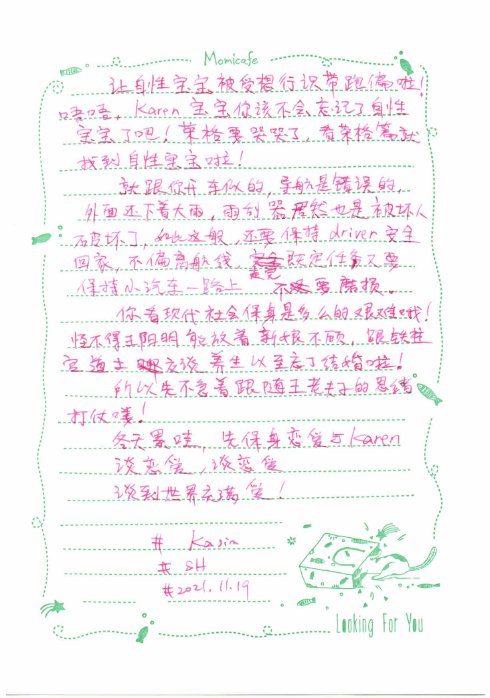 Momicafe
让自性宝宝被受想行识带跑偏啦！
唔唔，Karen宝宝你该不会忘记了自性
宝宝了吧！荣格要哭哭了，看荣格篇就
找到自性宝宝啦！
就跟你开车似的，导航是错误的，
外面还下着大雨，雨刮器居然也是被坏人
破坏了，如此这般，还要保持driver安全
回家，不偏离航线，完成既定任务又要
保持小汽车一路上 不要磨损。
你看现代社会保身是多么的艰难哦！
怪不得王阳明能放着新娘不顾，跟铁柱
宫道士畅谈养生以至忘了结婚啦！
所以先不急着跟随王老夫子的思绪
打仗喽！
冬天累哇，先保身恋爱与Karen
谈恋爱，谈恋爱
谈到世界充满爱！
# Kasin
# SH
# 2021.11.19
Looking For You